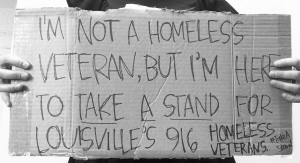 I'M NOT A HOMELESS
VETERAN, BUT I'M HERE
TO TAKE A STAND FOR
LOUISVILLE'S 916 HOMELESS
VETERANS.